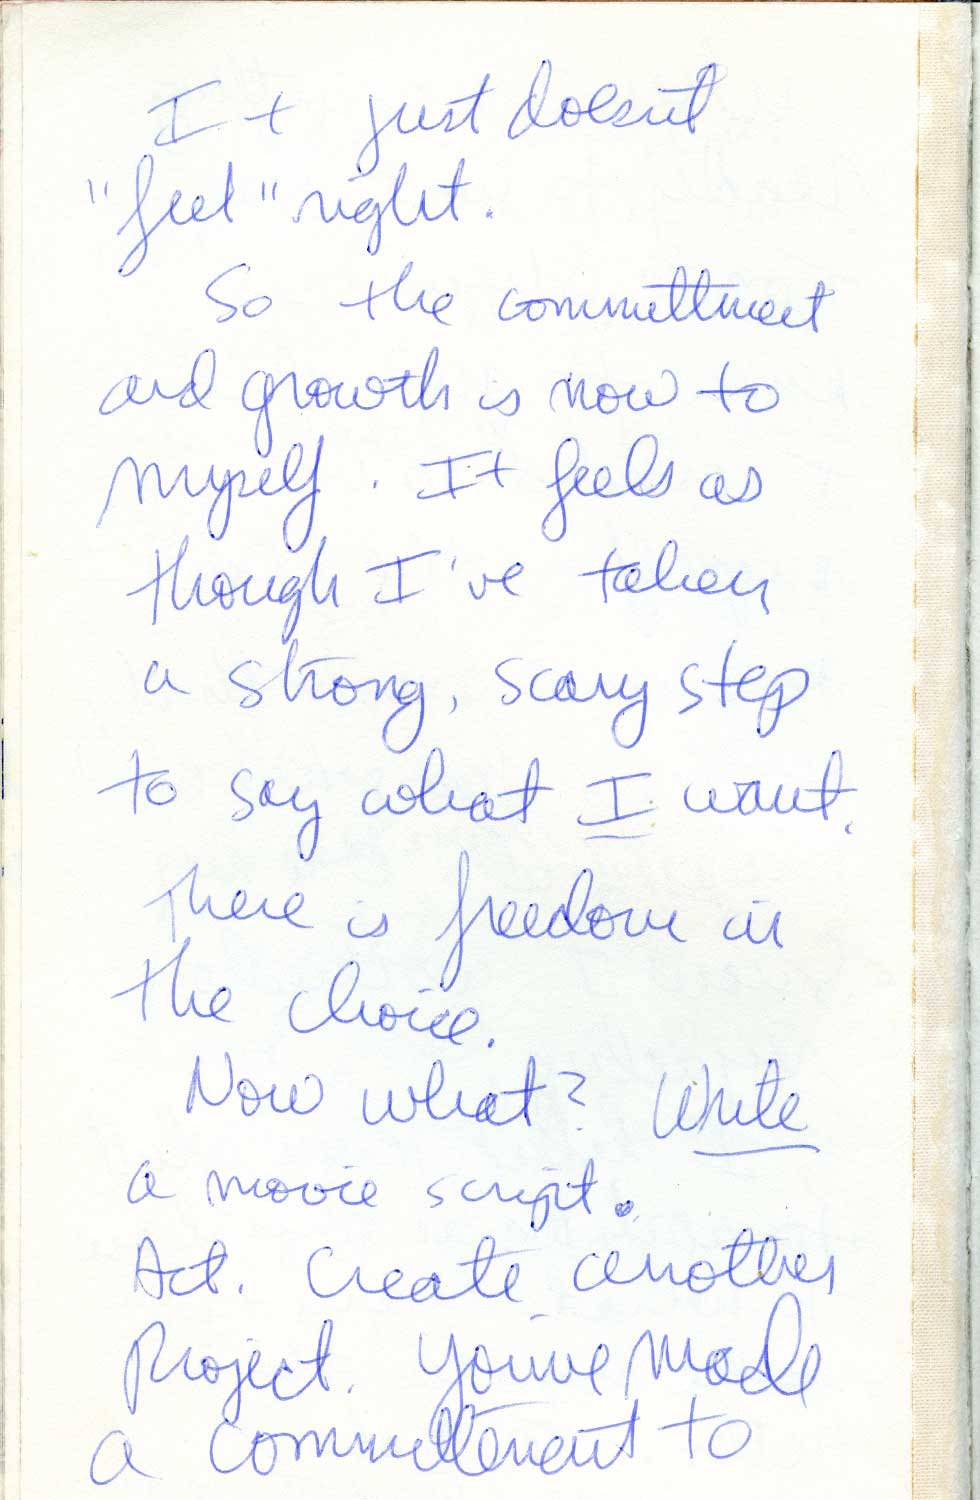 It just doesn't
"feel" right.
So the committment
and growth is now to
myself. It feels as
though I've taken
a strong, scary step
to say what I want.
There is freedom in
the choice.
Now what? Write
a movie script.
Act. Create another
Project. You've made
a committment to